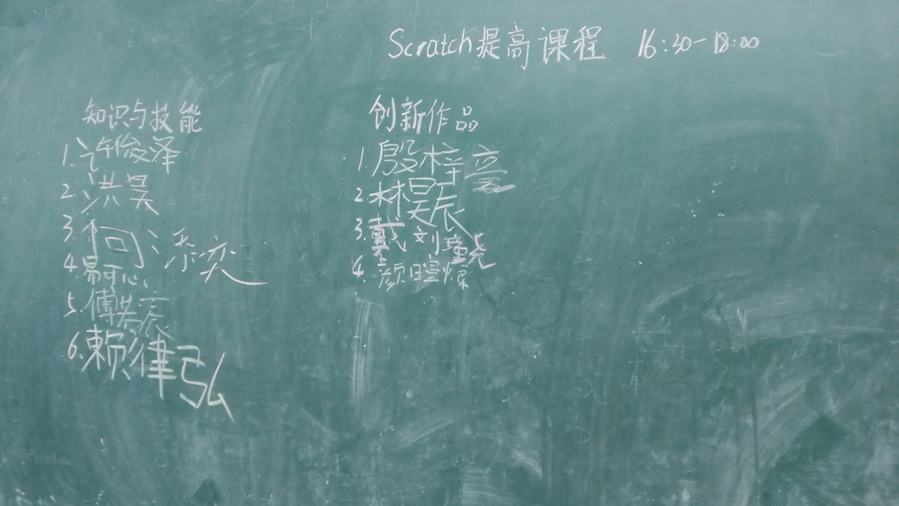 Scratch提高课程 16:30-18:00
知识与技能
1.许俊泽
2.洪昊
3.何
4.易可心
5.傅芸宸
6.赖律弘
创新作品
1.殷梓童
2.林昊辰
3.戴刘
4.颜